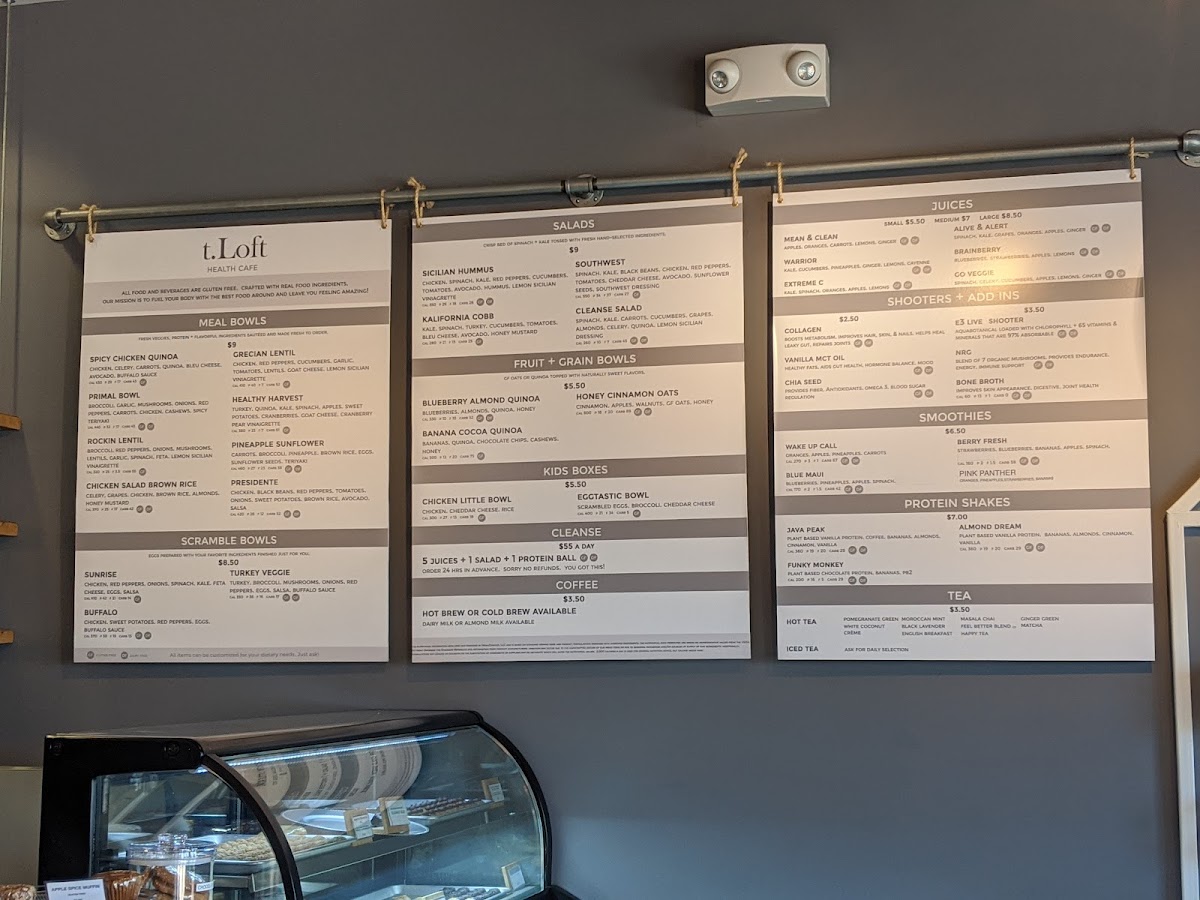 t.Loft
HEALTH CAFE
ALL FOOD AND BEVERAGES ARE GLUTEN FREE, CRAFTED WITH REAL FOOD INGREDIENTS.
OUR MISSION IS TO FUEL YOUR BODY WITH THE BEST FOOD AROUND AND LEAVE YOU FEELING AMAZING!
MEAL BOWLS
FRESH VEGGIES, PROTEIN + FLAVORFUL INGREDIENTS SAUTEED AND MADE FRESH TO ORDER.
$9
SPICY CHICKEN QUINOA
CHICKEN, CELERY, CARROTS, QUINOA, BLEU CHEESE,
AVOCADO, BUFFALO SAUCE
PRIMAL BOWL
BROCCOLI, GARLIC, MUSHROOMS, ONIONS, RED
PEPPERS, CARROTS, CHICKEN, CASHEWS, SPICY
TERIYAKI
ROCKIN LENTIL
BROCCOLI, RED PEPPERS, ONIONS, MUSHROOMS,
LENTILS, GARLIC, SPINACH, FETA, LEMON SICILIAN
VINAIGRETTE
CHICKEN SALAD BROWN RICE
CELERY, GRAPES, CHICKEN, BROWN RICE, ALMONDS,
HONEY MUSTARD
GRECIAN LENTIL
CHICKEN, RED PEPPERS, CUCUMBERS, GARLIC,
TOMATOES, LENTILS, GOAT CHEESE, LEMON SICILIAN
VINIAGRETTE
HEALTHY HARVEST
TURKEY, QUINOA, KALE, SPINACH, APPLES, SWEET
POTATOES, CRANBERRIES, GOAT CHEESE, CRANBERRY
PEAR VINAIGRETTE
PINEAPPLE SUNFLOWER
CARROTS, BROCCOLI, PINEAPPLE, BROWN RICE, EGGS,
SUNFLOWER SEEDS, TERIYAKI
PRESIDENTE
CHICKEN, BLACK BEANS, RED PEPPERS, TOMATOES,
ONIONS, SWEET POTATOES, BROWN RICE, AVOCADO,
SALSA
SCRAMBLE BOWLS
EGGS PREPARED WITH YOUR FAVORITE INGREDIENTS FINISHED JUST FOR YOU.
$8.50
SUNRISE
CHICKEN, RED PEPPERS, ONIONS, SPINACH, KALE, FETA
CHEESE, EGGS, SALSA
BUFFALO
CHICKEN, SWEET POTATOES, RED PEPPERS, EGGS,
BUFFALO SAUCE
TURKEY VEGGIE
TURKEY, BROCCOLI, MUSHROOMS, ONIONS, RED
PEPPERS, EGGS, SALSA, BUFFALO SAUCE
All items can be customized for your dietary needs. Just ask!
SALADS
CRISP BED OF SPINACH + KALE TOSSED WITH FRESH HAND-SELECTED INGREDIENTS.
$9
SICILIAN HUMMUS
CHICKEN, SPINACH, KALE, RED PEPPERS, CUCUMBERS,
TOMATOES, AVOCADO, HUMMUS, LEMON SICILIAN
VINIAGRETTE
KALIFORNIA COBB
KALE, SPINACH, TURKEY, CUCUMBERS, TOMATOES,
BLEU CHEESE, AVOCADO, HONEY MUSTARD
SOUTHWEST
SPINACH, KALE, BLACK BEANS, CHICKEN, RED PEPPERS,
TOMATOES, CHEDDAR CHEESE, AVOCADO, SUNFLOWER
SEEDS, SOUTHWEST DRESSING
CLEANSE SALAD
SPINACH, KALE, CARROTS, CUCUMBERS, GRAPES,
ALMONDS, CELERY, QUINOA, LEMON SICILIAN
DRESSING
FRUIT + GRAIN BOWLS
GF OATS OR QUINOA TOPPED WITH NATURALLY SWEET FLAVORS.
$5.50
BLUEBERRY ALMOND QUINOA
BLUEBERRIES, ALMONDS, QUINOA, HONEY
BANANA COCOA QUINOA
BANANAS, QUINOA, CHOCOLATE CHIPS, CASHEWS,
HONEY
HONEY CINNAMON OATS
CINNAMON, APPLES, WALNUTS, GF OATS, HONEY
KIDS BOXES
$5.50
CHICKEN LITTLE BOWL
CHICKEN, CHEDDAR CHEESE, RICE
EGGTASTIC BOWL
SCRAMBLED EGGS, BROCCOLI, CHEDDAR CHEESE
CLEANSE
$55 A DAY
5 JUICES + 1 SALAD + 1 PROTEIN BALL
ORDER 24 HRS IN ADVANCE. SORRY NO REFUNDS. YOU GOT THIS!
COFFEE
$3.50
HOT BREW OR COLD BREW AVAILABLE
DAIRY MILK OR ALMOND MILK AVAILABLE
JUICES
SMALL $5.50 MEDIUM $7 LARGE $8.50
MEAN & CLEAN
APPLES, ORANGES, CARROTS, LEMONS, GINGER
WARRIOR
KALE, CUCUMBERS, PINEAPPLES, GINGER, LEMONS, CAYENNE
EXTREME C
KALE, SPINACH, ORANGES, APPLES, LEMONS
ALIVE & ALERT
SPINACH, KALE, GRAPES, ORANGES, APPLES, GINGER
BRAINBERRY
BLUEBERRIES, STRAWBERRIES, APPLES, LEMONS
GO VEGGIE
SPINACH, CELERY, CUCUMBERS, APPLES, LEMONS, GINGER
SHOOTERS + ADD INS
$2.50
COLLAGEN
BOOSTS METABOLISM, IMPROVES HAIR, SKIN, & NAILS, HELPS HEAL
LEAKY GUT, REPAIRS JOINTS
VANILLA MCT OIL
HEALTHY FATS, AIDS GUT HEALTH, HORMONE BALANCE, MOOD
ENERGY
CHIA SEED
PROVIDES FIBER, ANTIOXIDANTS, OMEGA 3, BLOOD SUGAR
REGULATION
$3.50
E3 LIVE SHOOTER
AQUABOTANICAL LOADED WITH CHLOROPHYLL + 65 VITAMINS &
MINERALS THAT ARE 97% ABSORBABLE
NRG
BLEND OF 7 ORGANIC MUSHROOMS, PROVIDES ENDURANCE,
ENERGY, IMMUNE SUPPORT
BONE BROTH
IMPROVES SKIN APPEARANCE, DIGESTIVE, JOINT HEALTH
SMOOTHIES
$6.50
WAKE UP CALL
ORANGES, APPLES, PINEAPPLES, CARROTS
BLUE MAUI
BLUEBERRIES, PINEAPPLES, APPLES, SPINACH,
BERRY FRESH
STRAWBERRIES, BLUEBERRIES, BANANAS, APPLES, SPINACH,
PINK PANTHER
ORANGES, PINEAPPLES, STRAWBERRIES, BANANAS
PROTEIN SHAKES
$7.00
JAVA PEAK
PLANT BASED VANILLA PROTEIN, COFFEE, BANANAS, ALMONDS,
CINNAMON, VANILLA
FUNKY MONKEY
PLANT BASED CHOCOLATE PROTEIN, BANANAS, PB2
ALMOND DREAM
PLANT BASED VANILLA PROTEIN, BANANAS, ALMONDS, CINNAMON,
VANILLA
TEA
$3.50
HOT TEA
POMEGRANATE GREEN
WHITE COCONUT
CRÈME
MOROCCAN MINT
BLACK LAVENDER
ENGLISH BREAKFAST
MASALA CHAI
FEEL BETTER BLEND
HAPPY TEA
GINGER GREEN
MATCHA
ICED TEA ASK FOR DAILY SELECTION
APPLE SPICE MUFFIN